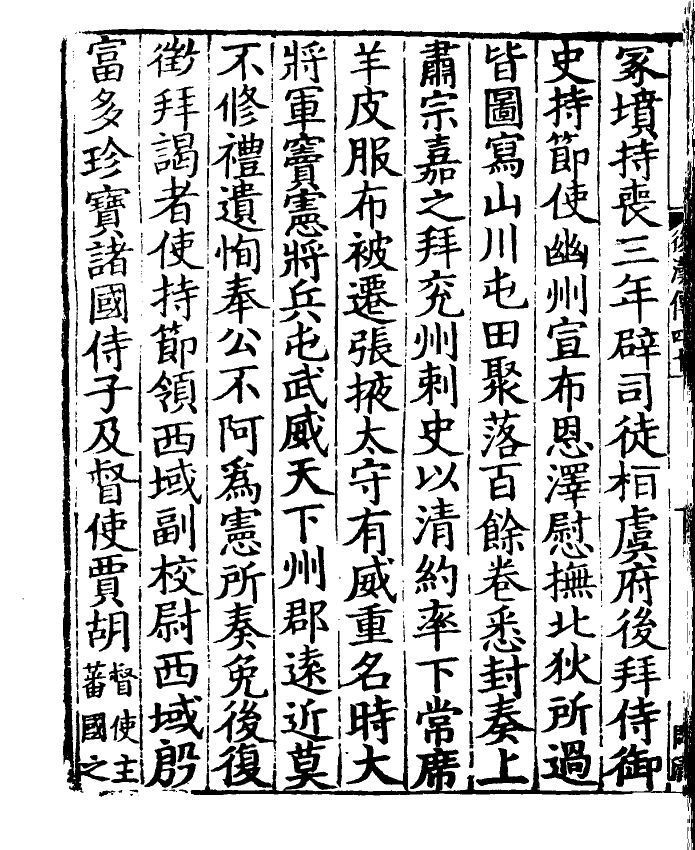 冢墳持喪三年辟司徒桓虞府後拜侍御
史持節使幽州宣布恩澤慰撫北狄所過
皆圖寫山川屯田聚落百餘卷悉封奏上
肅宗嘉之拜兖州刺史以清約率下常席
羊皮服布被遷張掖太守有威重名時大
將軍竇憲將兵屯武威天下州郡遠近莫
不修禮遺恂奉公不阿爲憲所奏免後復
徵拜謁者使持節領西域副校尉西域殷
富多珍寶諸國侍子及督使賈胡督使主蕃國之
後漢傳四十